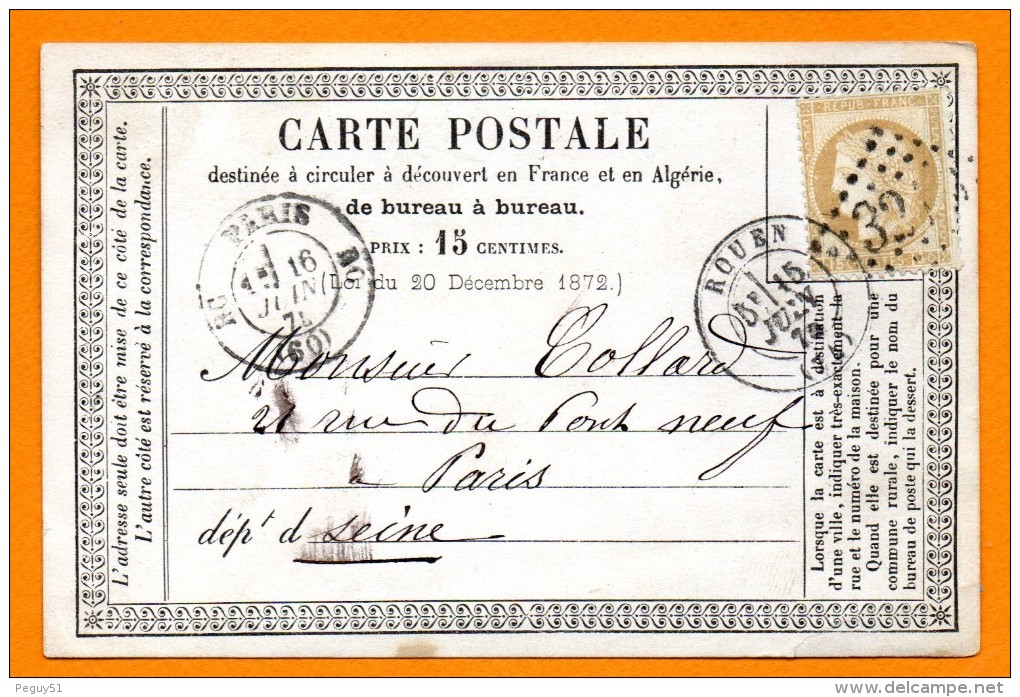 CARTE POSTALE
destinée à circuler à découvert en France et en Algérie,
de bureau à bureau.
PRIX : 15 CENTIMES.
(Loi du 20 Décembre 1872.)
L'adresse seule doit être mise de ce côté de la carte.
L'autre côté est réservé à la correspondance.
REPUB. FRANC.
PARIS
16
JUIN
(60)
ROUEN
15
JUIN
Monsieur Collard
21 rue du Pont neuf
à Paris
dépt d Seine
Lorsque la carte est à destination
d'une ville, indiquer très-exactement la
rue et le numéro de la maison.
Quand elle est destinée pour une
commune rurale, indiquer le nom du
bureau de poste qui la dessert.
Peguy51
delcampe.net